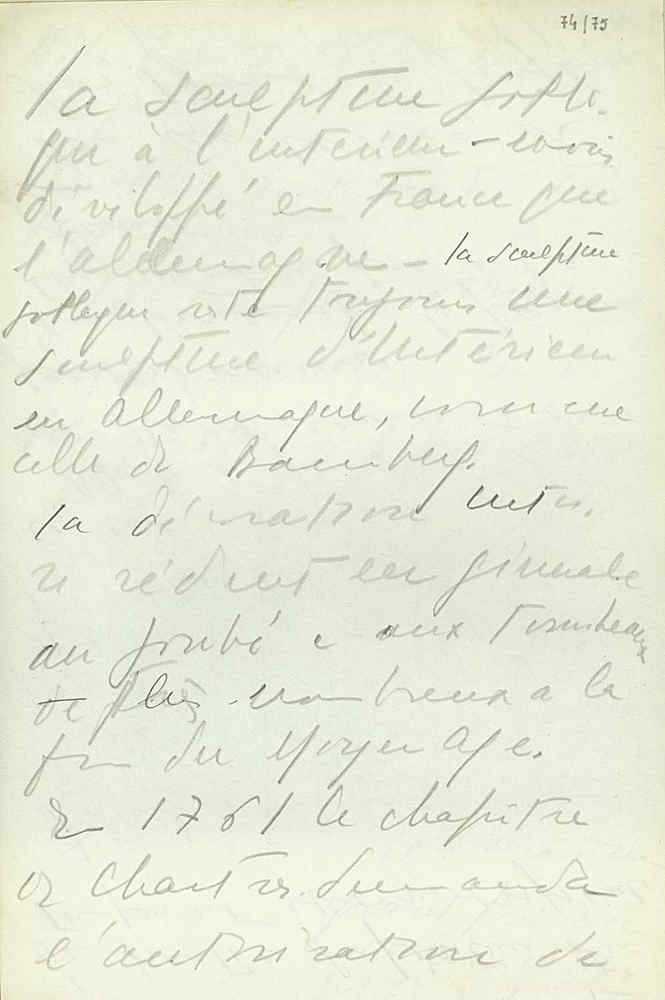 74/75
la sculpture gothi-
que à l'interieur - moins
développé en France que
l'allemagne - la sculpture
gothique reste toujours une
sculpture d'interieur
en allemagne, comme
celle de Bamberg.
la décoration inter.
se réduit en générale
au jubé e aux tombeaux
de plus nombreux a la
fin du Moyen Age.
En 1761 le chapitre
de Chartres demanda
l'autorisation de